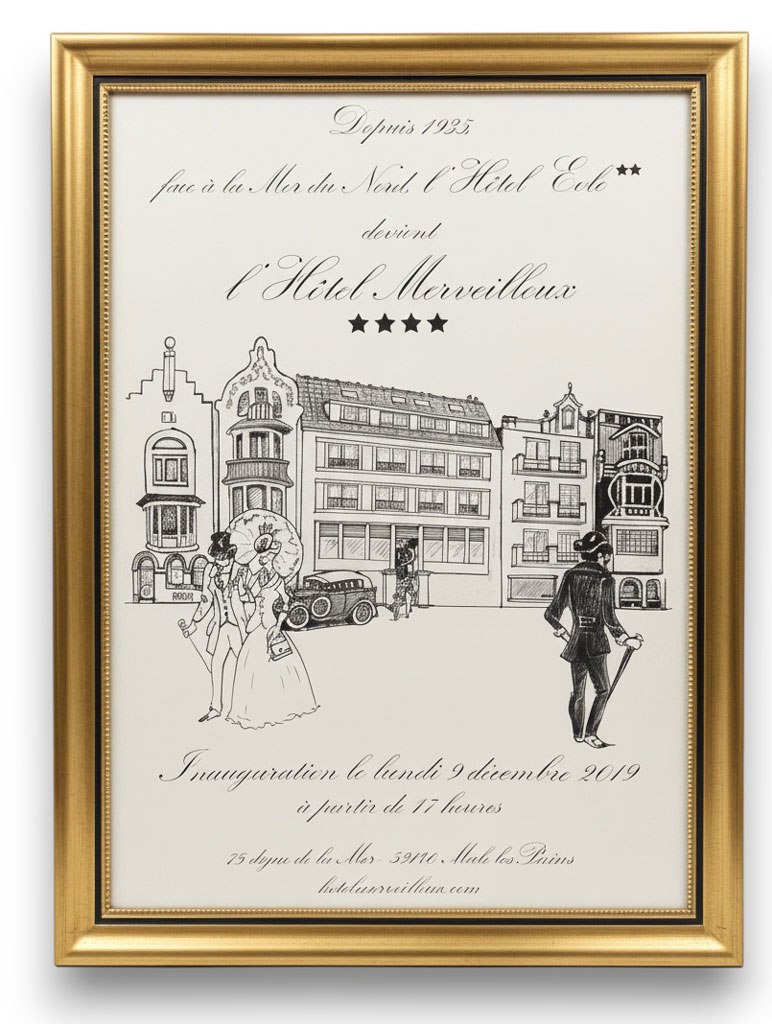 Depuis 1935,
face à la Mer du Nord, l'Hôtel Eole ★★
devient
l'Hôtel Merveilleux
★★★★
Inauguration le lundi 9 décembre 2019
à partir de 17 heures
75 digue de la Mer - 59140 Malo les Bains
hotelmerveilleux.com